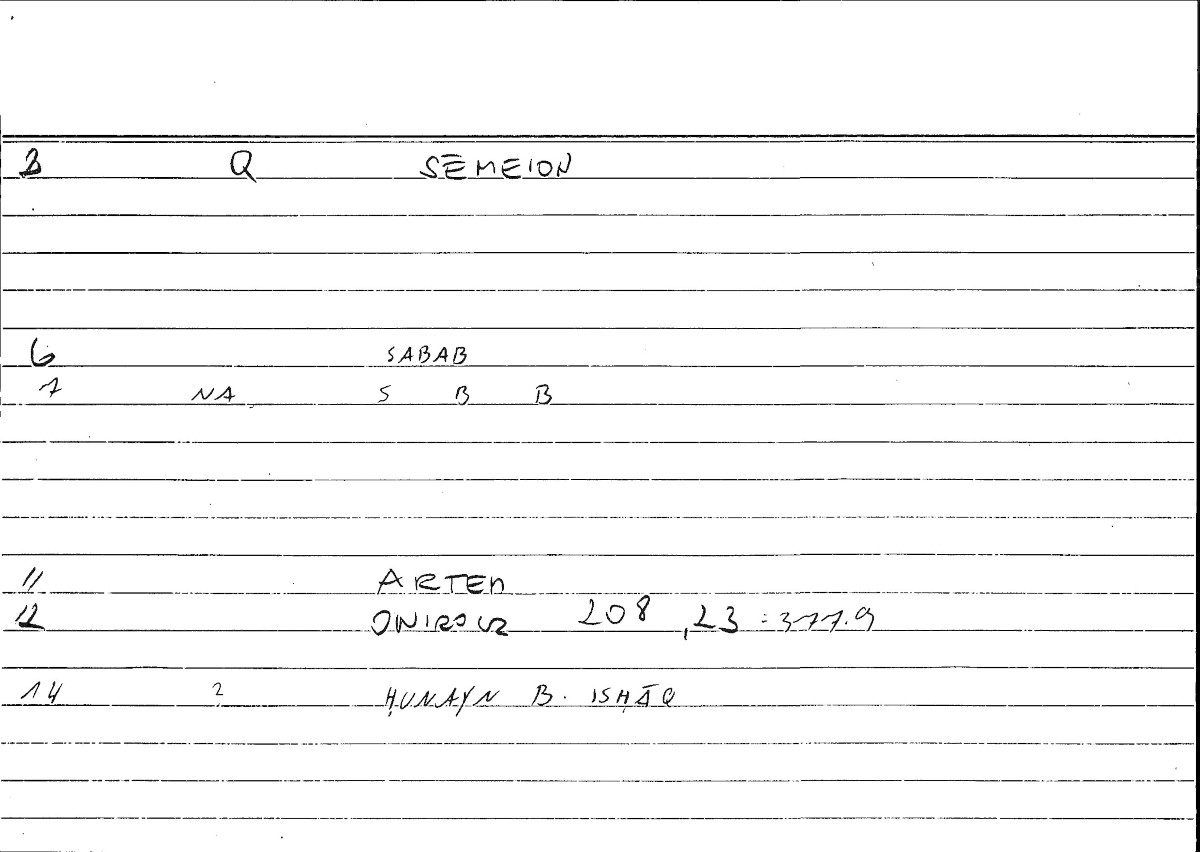 3 Q SĒMEION
6 SABAB
7 NA S B B
11 ARTEM
12 ONIROCR 208,23 : 377.9
14 ? ḤUNAYN B. ISḤĀQ